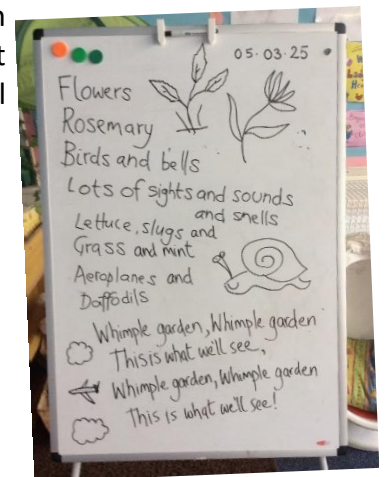 05.03.25
Flowers
Rosemary
Birds and bells
Lots of sights and sounds
and smells
Lettuce, slugs and
Grass and mint
Aeroplanes and
Daffodils
Whimple garden, Whimple garden
This is what we'll see,
Whimple garden, Whimple garden
This is what we'll see!